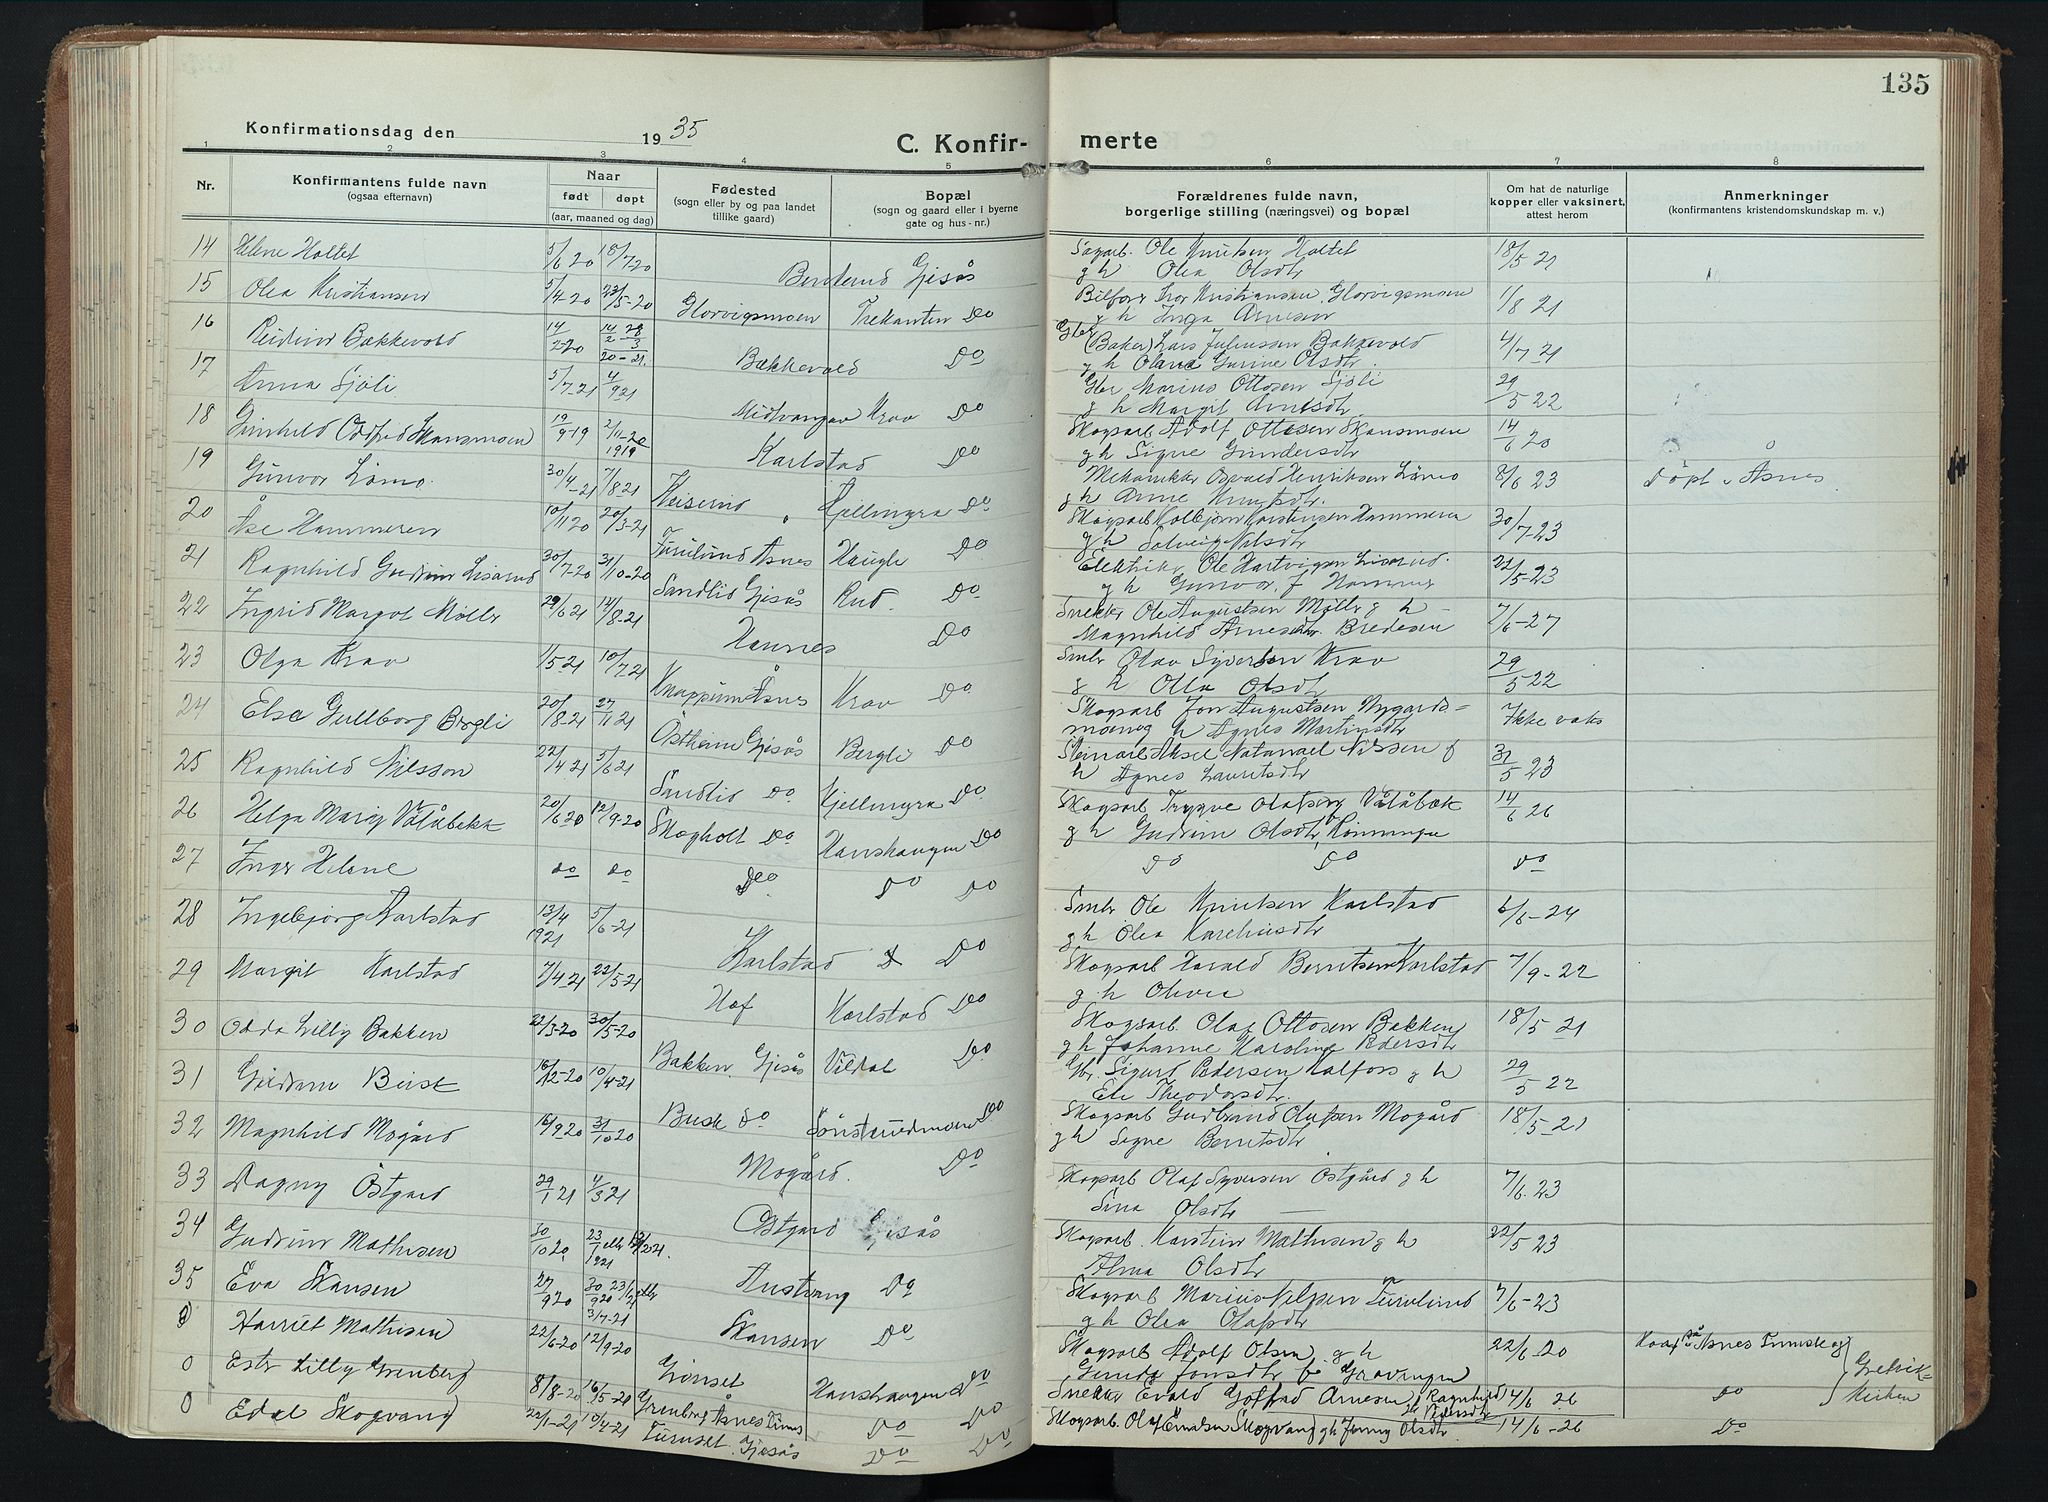 135
Konfirmationsdag den 1935
C. Konfir-
merte
1 2 3 4 5 6 7 8
Nr.
Konfirmantens fulde navn
(ogsaa efternavn)
Naar
født døpt
(aar, maaned og dag)
Fødested
(sogn eller by og paa landet
tillike gaard)
Bopæl
(sogn og gaard eller i byerne
gate og hus-nr.)
Forældrenes fulde navn,
borgerlige stilling (næringsvei) og bopæl
Om hat de naturlige
kopper eller vaksinert,
attest herom
Anmerkninger
(konfirmantens kristendomskundskap m. v.)
14 Helene Holtet 5/6 20 18/7 20 Gjesås Ole Knutsen Holtet 18/5 21
g h Olea Olsdtr
15 Olea Kristiansen 5/4-20 23/5-20 Glorvigsmoen Trekanten Do Kristiansen Glorvigsmoen 1/8 21
g h Inga Arnesen
16 Reidun Bakkevold 14/2-20 Bakkevold Do Gbr (Baker) Lars Juliussen Bakkevold 4/7 21
g h Olava Gurine Olsdtr.
17 Anna Sjöli 5/7-21 4/9 21 Midtvangen Krav Do Gbr Marius Ottosen Sjöli 29/5 22
g h Margit Arnesdtr.
18 Gunhild Oddfrid Skansmoen 19/9-19 2/11-20 1919 Karlstad Do Skogsarb Adolf Ottosen Skansmoen 14/6 20
g h Signe Gundersdtr
19 Gunvor Lömo 30/4-21 7/8-21 Kjellmyra Do Mekaniker Osvald Henriksen Lömo 8/6 23 Döpt i Åsnes
g h Anne Knutsdtr.
20 Åse Hammeren 10/11 20 20/3-21 Furulund Åsnes Haugli Do Skogsarb Kolbjörn Karstensen Hammeren 30/7-23
g h Solveig Nilsdtr
21 Ragnhild Gudrun Liserud 30/7-20 31/10-20 Sandlid Gjesås Rud. Do Elektriker Ole Hartvigsen Liserud. 22/5-23
g h Gunvor f. Hammer
22 Ingrid Margot Möller 29/6 21 14/8-21 Hannes Do Snekker Ole Augustsen Möller g h - 7/6-27
Magnhild Arnesdtr Bredesen
23 Olga Krav 1/5-21 10/7 21 Knappum Åsnes Krav Do Smbr Olav Syversen Krav 29/5 22
g h Olea Olsdtr
24 Else Gullborg Bergli 20/8-21 27/11 21 Östheim Gjesås Bergli Do Skogsarb Jon Augustsen Nygårds= Ikke vaks
moen g h Agnes Martinsdtr
25 Ragnhild Nilsson 22/4 21 5/6 21 Sandlid Do Kjellmyra Do Steinarb Aksel Natanael Nilssen g 31/5 23
h Agnes Lauritsdtr
26 Helga Marie Vålåbekk 20/6 20 12/9-20 Skogholt Do Hanshaugen Do Skogsarb Trygve Olafsen Vålåbæk 14/6 26
g h Gudrun Olsdtr Rönningen
27 Inger Helene do do Do Do Do Do Do Do
28 Ingebjörg Karlstad 13/4 1921 5/6-21 Karlstad Do Smbr Ole Knutsen Karlstad 6/6-24
g h Olea Karelinsdtr
29 Margit Karlstad 7/4-21 22/5-21 Hof Karlstad Do Skogsarb Harald Berntsen Karlstad 7/9-22
g h Olivie
30 Odda Lilly Bakken 22/3-20 30/5-20 Bakken Gjesås Vildal Do Skogsarb. Olaf Ottosen Bakken 18/5 21
g h Johanne Karoline Pedersdtr
31 Gudrun Busk 16/12-20 10/4-21 Busk Do Do Gbr. Sigurd Pedersen Kalfoss g h 29/5 22
Eli Theodorsdtr.
32 Magnhild Mogård 16/9 20 31/10 20 Mogård. Do Skogsarb Gudbrand Olufsen Mogård 18/5-21
g h Signe Berntsdtr
33 Dagny Östgård 29/1 21 4/3 21 Östgård Gjesås Skogsarb Olaf Syversen Östgård g h 7/6.23
Sina Olsdtr
34 Gudrun Mathisen 30/10 20 23/1 1921 Austvang Do Skogsarb. Karstein Mathisen g h 22/5 23
Alma Olsdtr
35 Eva Skansen 27/9 20 Skansen Do Skogsarb Marius Nilssen Furulund 7/6-23
g h Olea Olafsdtr
0 Harriet Mathisen 22/6-20 12/9-20 Grönset Hanshaugen Do Skogsarb Adolf Olsen g h 22/6-20
Gunda Jonsdtr
0 Ester Lilly Grenberg 8/8-20 16/5-21 Grenberg Åsnes Finns Do Do Snekker Evald Gotfred Arnesen g Ragnhild Pedersdtr 14/6 26 Do
0 Edel Skogvang 22/1-21 10/4-21 Furuset. Gjesås Do Do Skogsarb. Olaf Emilsen Skogvang g h Jenny Olsdtr 14/6-26 Do